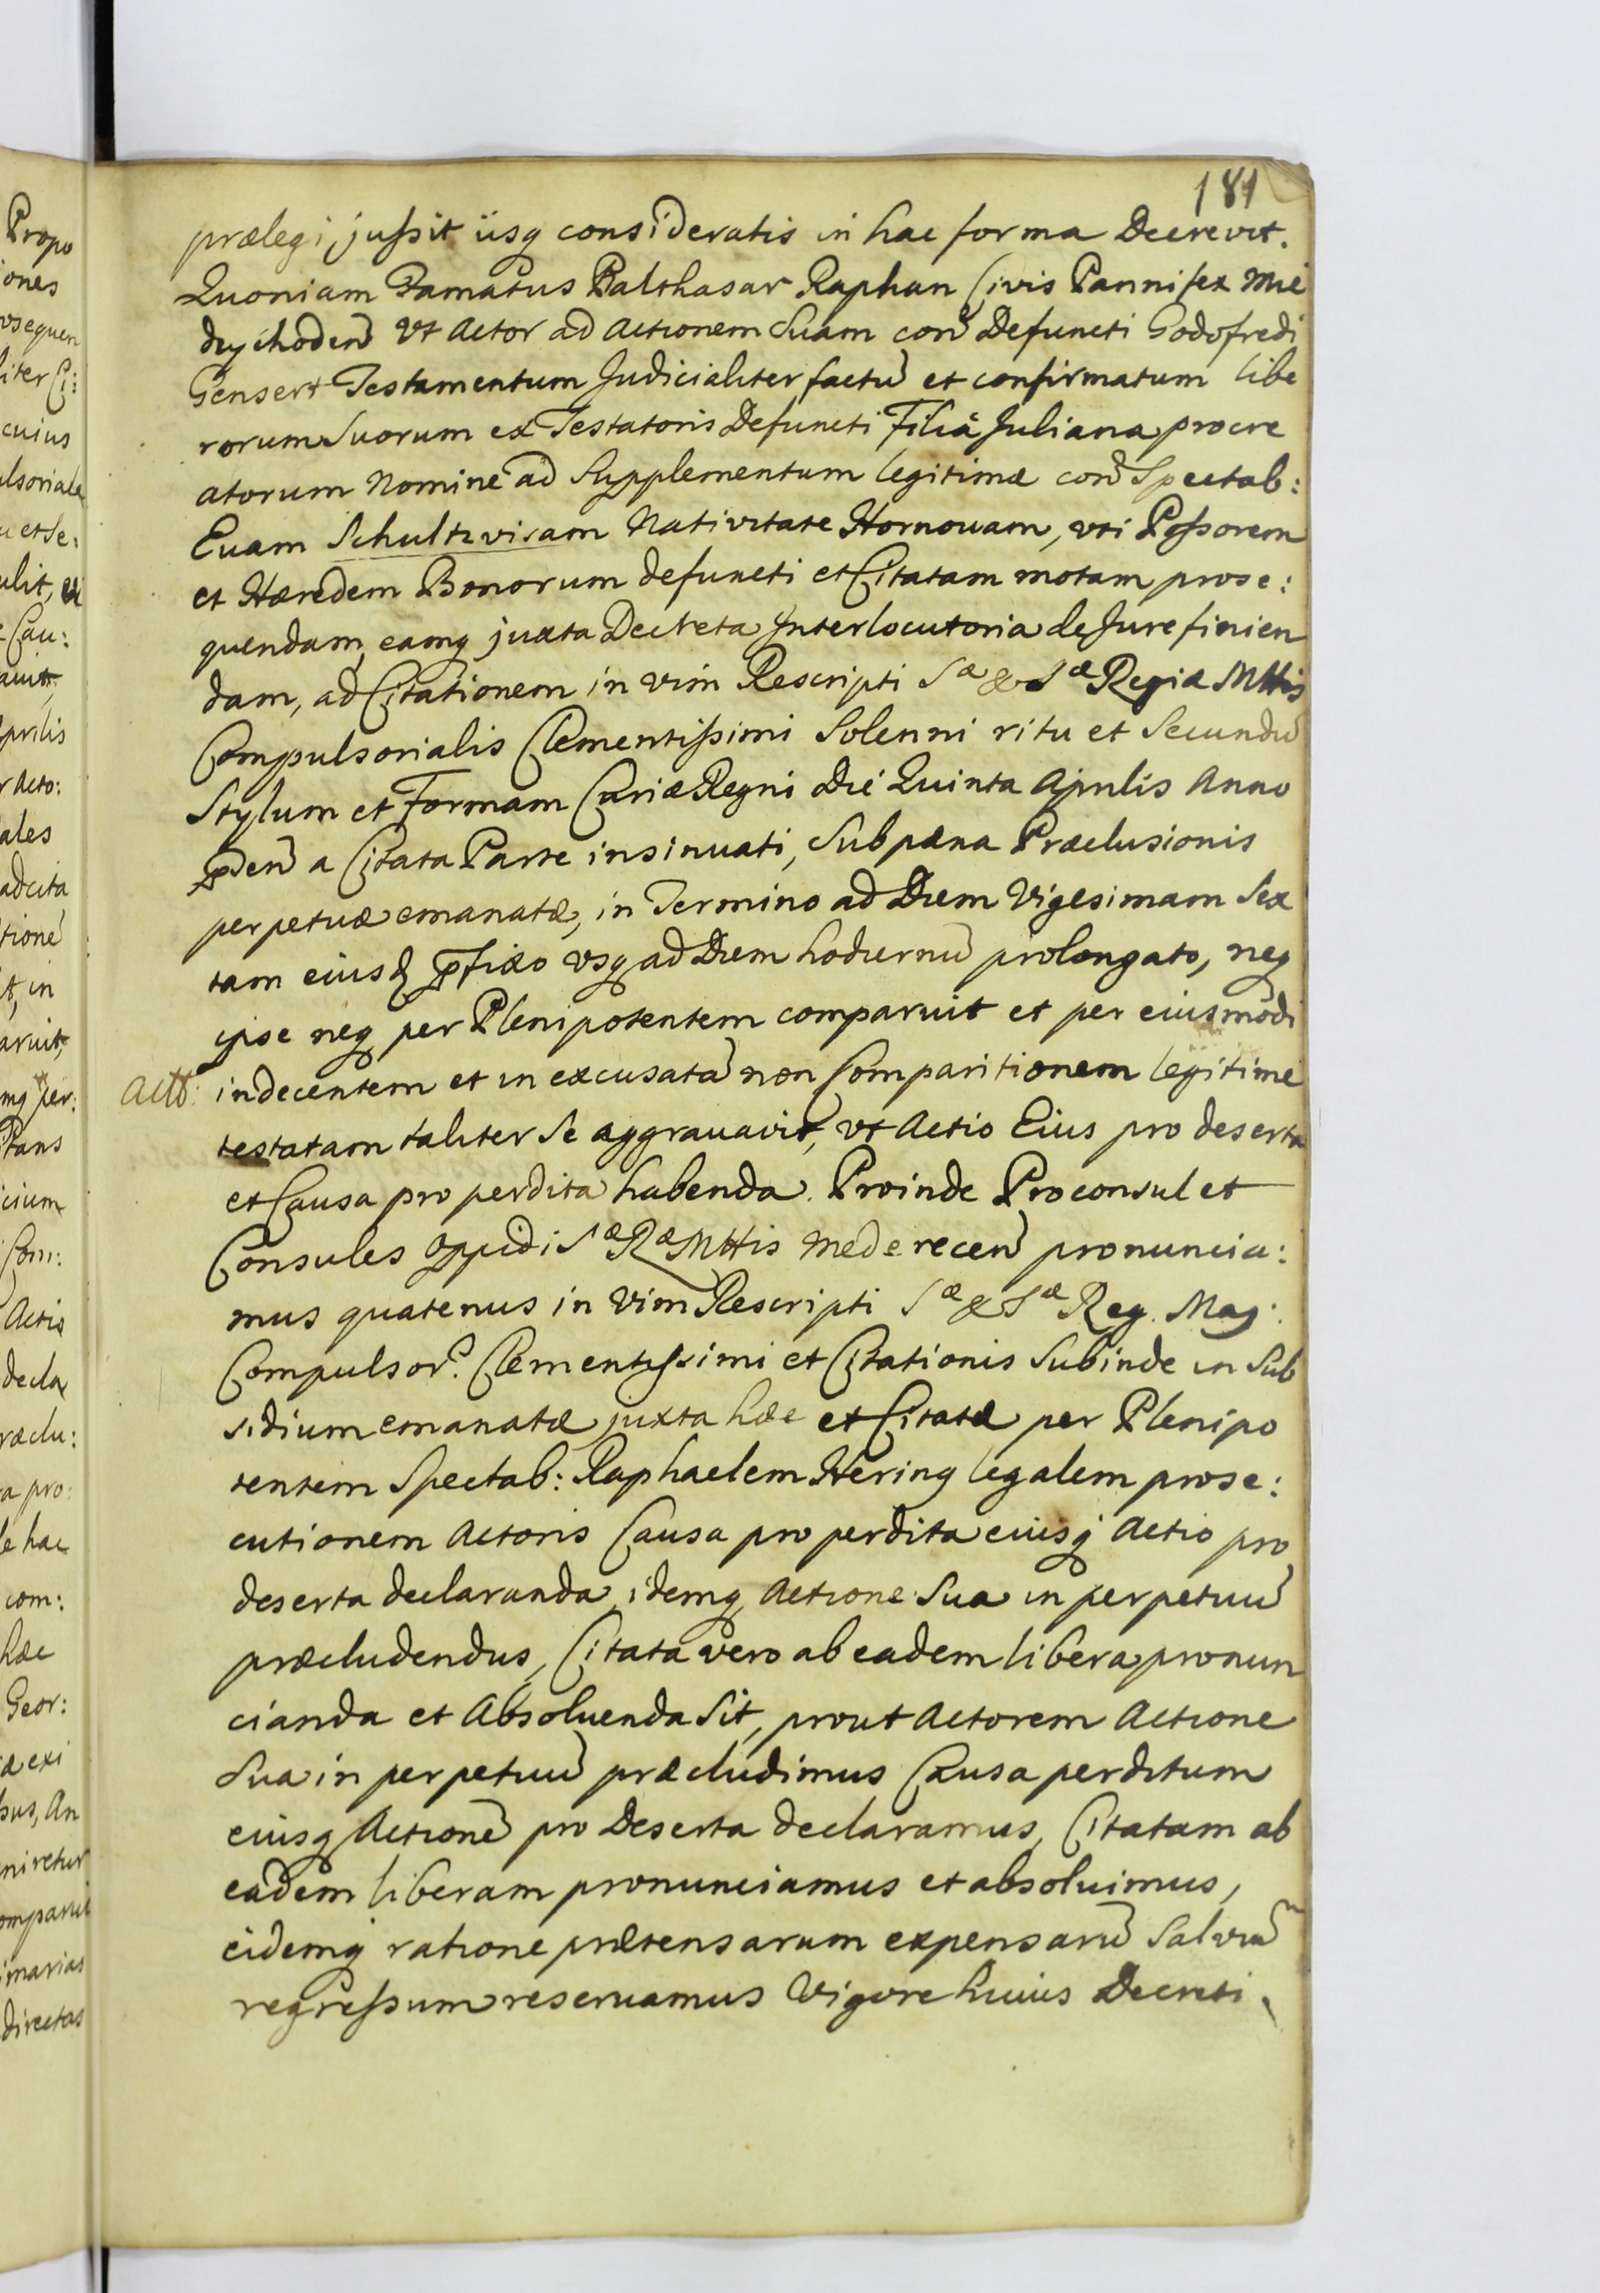 181
prælegi jussit iisq consideratis in hac forma Decrevit.
Quoniam Famatus Balthasar Raphan Civis Pannifex Mie
dzychoden̄ Vt Actor ad Actionem Suam con̄ Defuncti Godofredi
Gensert Testamentum Judicialiter factū et confirmatum libe
rorum Suorum ex Testatoris Defuncti Filiâ Juliana procre
atorum Nomine ad Supplementum legitimæ con̄ Spectab:
Evam Schultzvisam Nativitate Hornovam, vti Possorem
et Hæredem Bonorum defuncti et Citatam motam prose:
quendam, eamq juxta Decreta Interlocutoria de Jure finien
dam, ad Citationem in vim Rescripti Sæ & Sæ Regiæ Mttis
Compulsorialis Clementissimi Solenni ritu et Secundū
Stylum et Formam Curiæ Regni Die Quinta Aprilis Anno
p̄sen̄ a Citata Parte insinuati, Sub pæna Præclusionis
perpetuæ emanatæ, in Termino ad Diem Vigesimam Sex
tam eiusd p̄fixo vsq ad Diem hodiernū prolongato, neq
ipse neq per Plenipotentem comparuit et per eiusmodi
Actt: indecentem et in excusatā non Comparitionem legitime
testatam taliter Se aggravavit, vt Actio Eius pro deserta
et Causa pro perdita habenda. Proinde Proconsul et
Consules Oppidi Sæ Ræ Mttis Mederecen̄ pronuncia:
mus quatenus in Vim Rescripti Sæ & Sæ Reg. Maj:
Compulsor. Clementissimi et Citationis Subinde in Sub
sidium emanatæ juxta hæc et Citatæ per Plenipo
tentem Spectab: Raphaelem Hering legalem prose:
cutionem Actoris Causa pro perdita eiusq Actio pro
deserta declaranda, idemq Actione Sua in perpetuū
præcludendus, Citata vero ab eadem libera pronun
cianda et Absoluenda Sit, prout Actorem Actione
Sua in perpetuū præcludimus Causa perditum
eiusq Actionē pro Deserta declaramus, Citatam ab
eadem liberam pronunciamus et absoluimus,
eidemq ratione prætensarum expensarū Salvū
regressum reservamus Vigore huius Decreti.